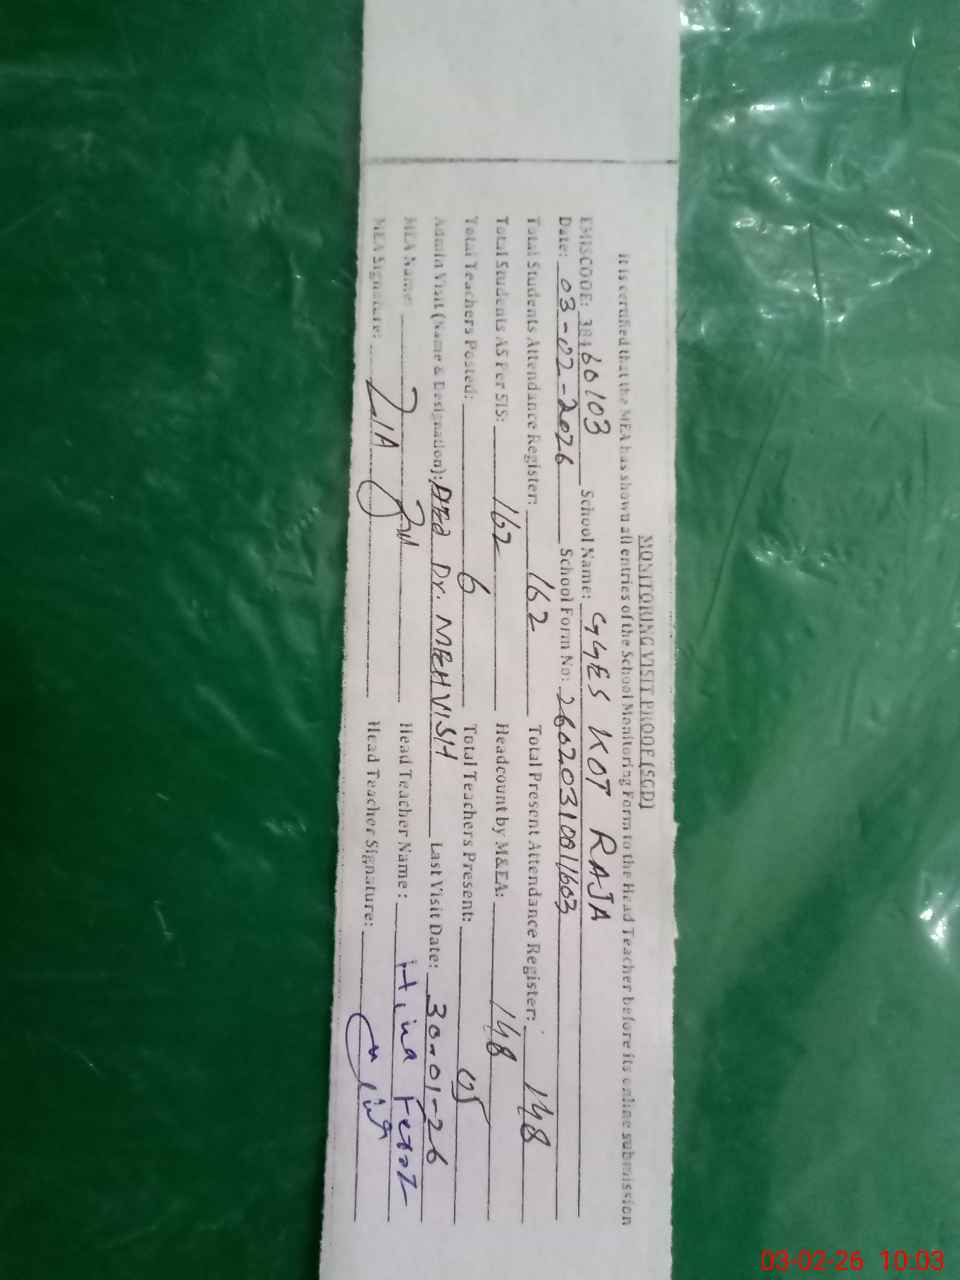 MONITORING VISIT PROOF (SGD)
It is certified that the MEA has shown all entries of the School Monitoring Form to the Head Teacher before its online submission
EMISCODE: 38460103 School Name: GGES KOT RAJA
Date: 03-02-2026 School Form No: 2602031001603
Total Students Attendance Register: 162 Total Present Attendance Register: 148
Total Students AS Per SIS: 162 Headcount by M&EA: 148
Total Teachers Posted: 6 Total Teachers Present: 05
Admin Visit (Name & Designation): Dr. MEHVISH Last Visit Date: 30-01-26
MEA Name: Head Teacher Name: Hina
MEA Signature: ZIA Head Teacher Signature:
03-02-26 10:03